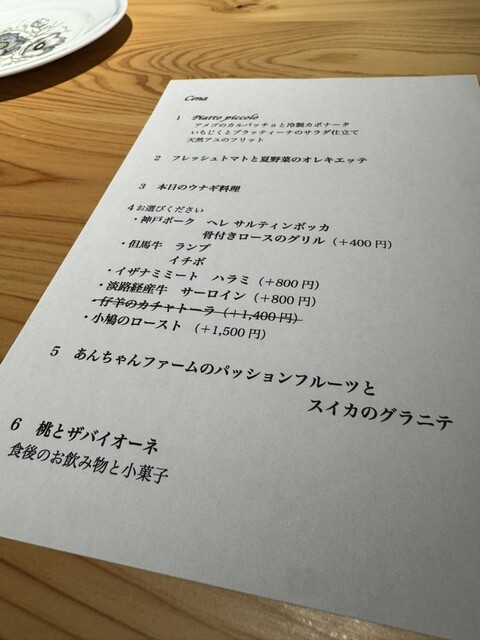 Cena
1 Piatto piccolo
アメゴのカルパッチョと冷製カポナータ
いちじくとブラッティーナのサラダ仕立て
天然アユのフリット
2 フレッシュトマトと夏野菜のオレキエッテ
3 本日のウナギ料理
4お選びください
・神戸ポーク ヘレ サルティンボッカ
骨付きロースのグリル（+400円）
・但馬牛 ランプ
イチボ
・イザナミミート ハラミ（+800円）
・淡路経産牛 サーロイン（+800円）
・仔羊のカチャトーラ（+1,400円）
・小鳩のロースト （+1,500円）
5 あんちゃんファームのパッションフルーツと
スイカのグラニテ
6 桃とザバイオーネ
食後のお飲み物と小菓子